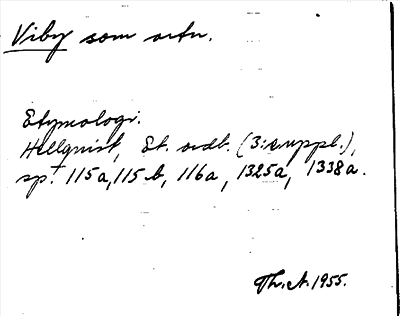 Viby som ortn.
Etymologi.
Hellquist, Et. ordb. (3:suppl.),
sp. 115a, 115b, 116a, 1325a, 1338a.
Th. A. 1955.